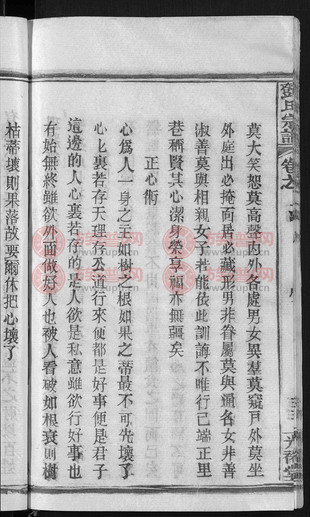 莫大笑恕莫高聲內外各處男女異羣莫窺戶外莫坐
外庭出必掩面居必藏形男非眷屬莫與通名女非善
淑善莫與相親女子若能依此訓誨不唯行己端正里
巷稱賢其心潔身榮享福亦無疆矣
正心術
心為人一身之主如樹之根如果之蒂最不可先壞了
心上裏若存天理存公道行來便都是好事便是君子
這邊的人心裏若存的是人欲是私意雖欲行好事也
有始無終雖欲外面做好人也被人看破如根衰則樹
枯蒂壞則果落故要爾休把心壞了